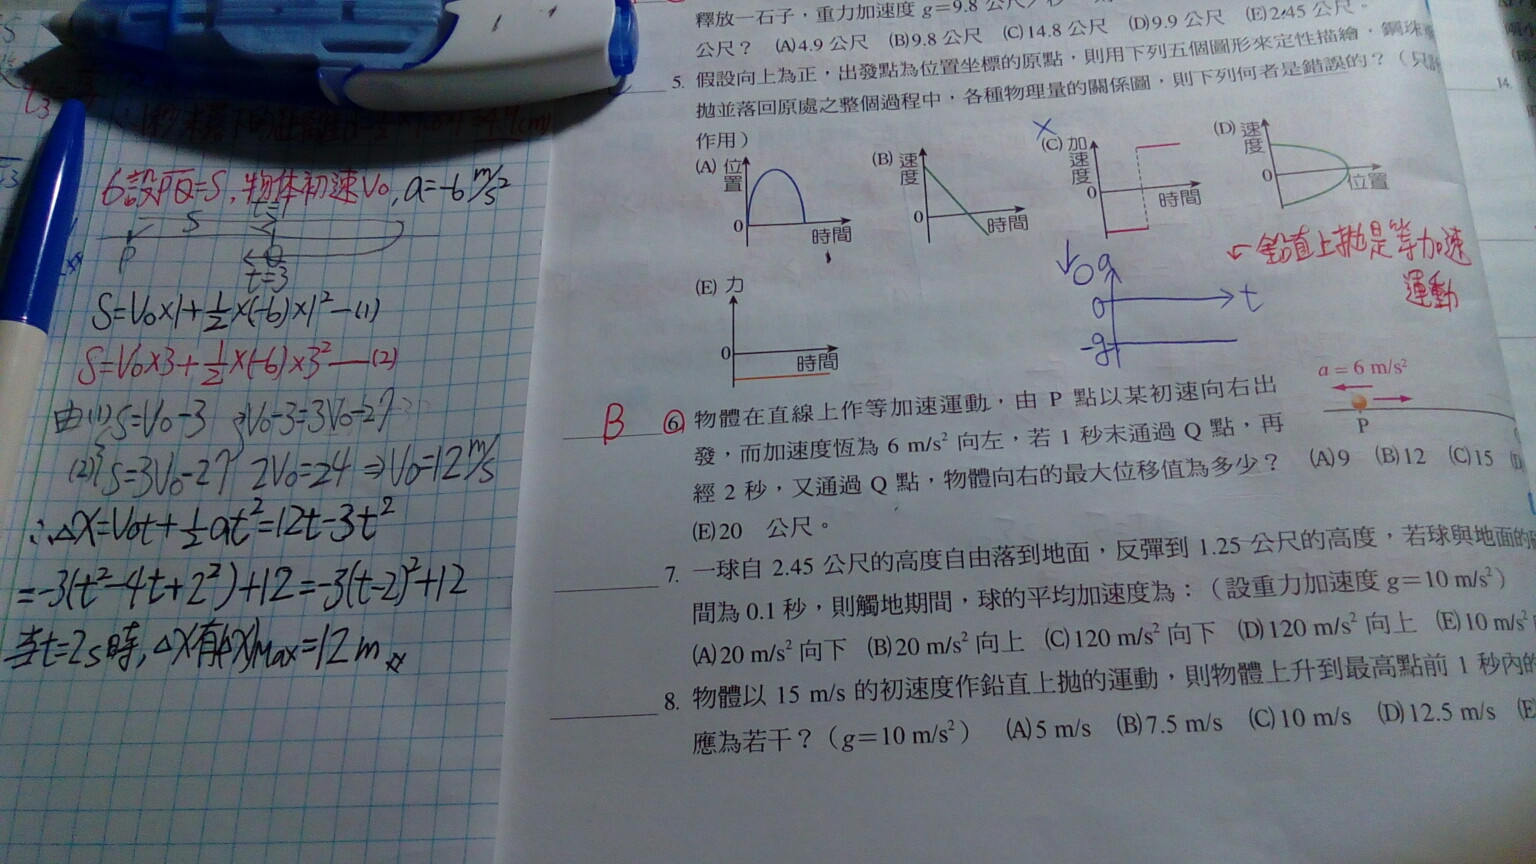 6.設PQ=S,物体初速V₀,a=-6 m/s²
t=1
S
P
Q
t=3
S=V₀×1+½×(-6)×1²—(1)
S=V₀×3+½×(-6)×3²—(2)
由(1) S=V₀-3 V₀-3=3V₀-27
(2) S=3V₀-27 2V₀=24⇒V₀=12 m/s
∴△X=V₀t+½at²=12t-3t²
=-3(t²-4t+2²)+12=-3(t-2)²+12
當t=2s時,△X有(△X)Max=12m
釋放一石子,重力加速度 g=9.8 公尺/秒
公尺? (A)4.9 公尺 (B)9.8 公尺 (C)14.8 公尺 (D)9.9 公尺 (E)2.45 公尺。
5. 假設向上為正,出發點為位置坐標的原點,則用下列五個圖形來定性描繪,鋼珠
拋並落回原處之整個過程中,各種物理量的關係圖,則下列何者是錯誤的?(只
作用)
(A) 位置 0 時間
(B) 速度 0 時間
(C) 加速度 0 時間
(D) 速度 0 位置
←鉛直上拋是等加速
運動
↓g
0 t
-g
(E) 力 0 時間
a=6 m/s²
P
B 6. 物體在直線上作等加速運動,由 P 點以某初速向右出
發,而加速度恆為 6 m/s² 向左,若 1 秒末通過 Q 點,再
經 2 秒,又通過 Q 點,物體向右的最大位移值為多少? (A)9 (B)12 (C)15
(E)20 公尺。
7. 一球自 2.45 公尺的高度自由落到地面,反彈到 1.25 公尺的高度,若球與地面的
間為 0.1 秒,則觸地期間,球的平均加速度為:(設重力加速度 g=10 m/s²)
(A)20 m/s² 向下 (B)20 m/s² 向上 (C)120 m/s² 向下 (D)120 m/s² 向上 (E)10 m/s²
8. 物體以 15 m/s 的初速度作鉛直上拋的運動,則物體上升到最高點前 1 秒內的
應為若干?(g=10 m/s²) (A)5 m/s (B)7.5 m/s (C)10 m/s (D)12.5 m/s (E)
14.